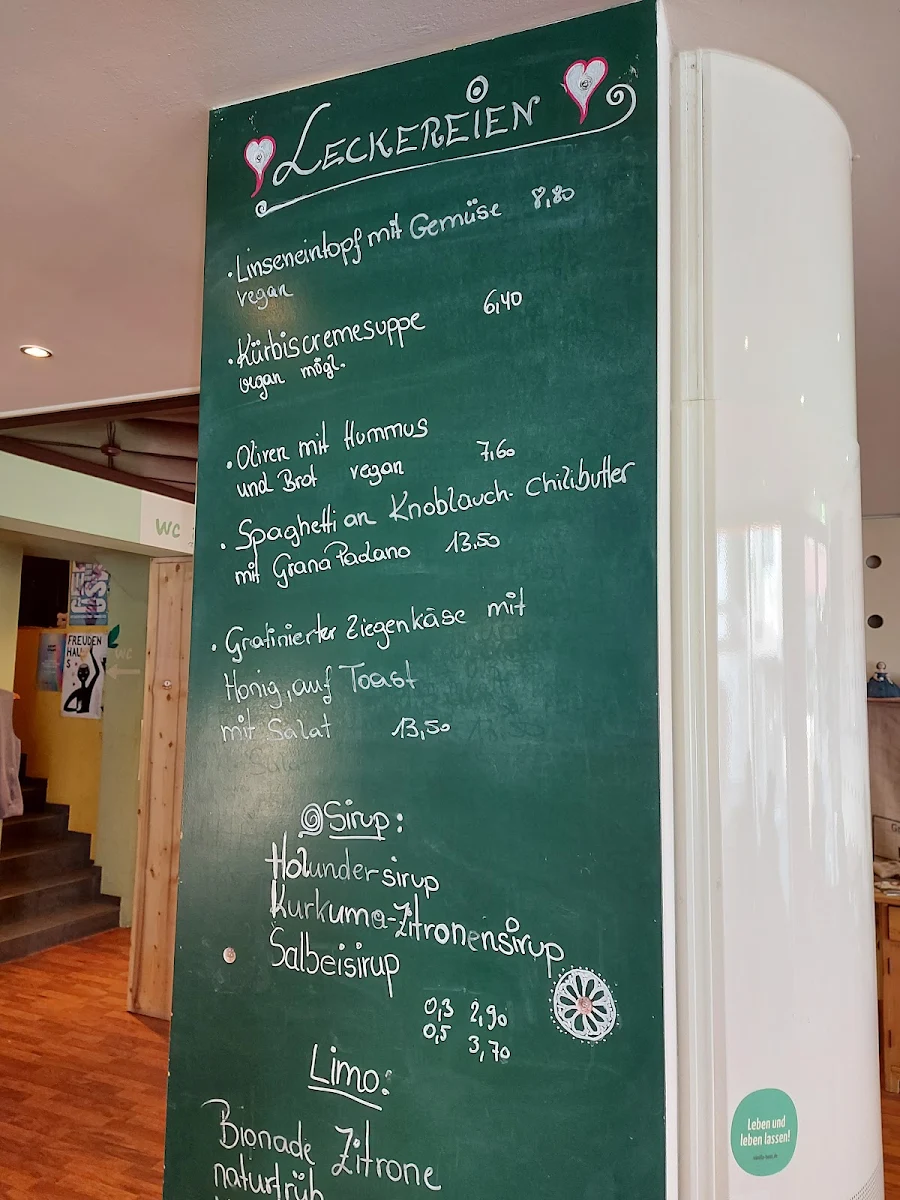 LECKEREIEN
• Linseneintopf mit Gemüse 8,80
vegan
• Kürbiscremesuppe 6,40
vegan mögl.
• Oliven mit Hummus
und Brot vegan 7,60
• Spaghetti an Knoblauch- Chilibutter
mit Grana Padano 13,50
• Gratinierter Ziegenkäse mit
Honig, auf Toast
mit Salat 13,50
Sirup:
Holundersirup
Kurkuma-Zitronensirup
Salbeisirup
0,3 2,90
0,5 3,70
Limo:
Bionade Zitrone
naturtrüb
WC
WC
FREUDEN
HAU
S
Leben und
leben lassen!